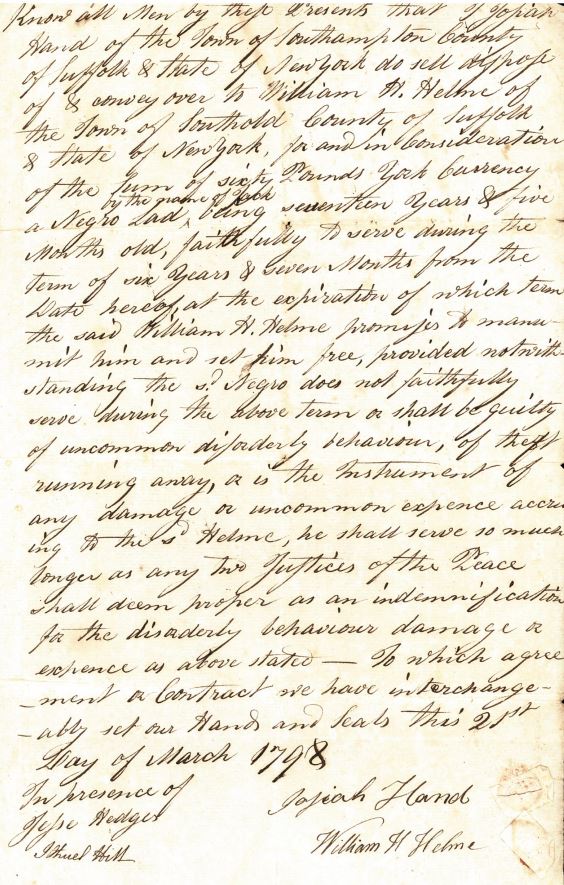 Know all Men by these Presents that I Josiah
Hand of the Town of Southampton County
of Suffolk & State of New York do sell dispose
of & convey over to William H. Helme of
the Town of Southold County of Suffolk
& State of New York, for and in Consideration
of the Sum of sixty Pounds York Currency
by the name of Jack
a Negro Lad, ‸ being seventeen Years & five
Months old, faithfully to serve during the
term of six Years & seven Months from the
Date hereof, at the expiration of which term
the said William H. Helme promises to manu-
mit him and set him free, provided notwith-
standing the sd Negro does not faithfully
serve during the above term or shall be guilty
of uncommon disorderly behaviour, of theft
running away, or is the Instrument of
any damage or uncommon expence accru
ing to the sd Helme, he shall serve so much
longer as any two Justices of the Peace
shall deem proper as an indemnification
for the disorderly behaviour damage or
expence as above stated — To which agree
-ment or Contract we have interchange-
-ably set our Hands and Seals this 21st
Day of March 1798
In presence of
Josiah Hand
Jesse Hedges
William H Helme
Ithuel Hill